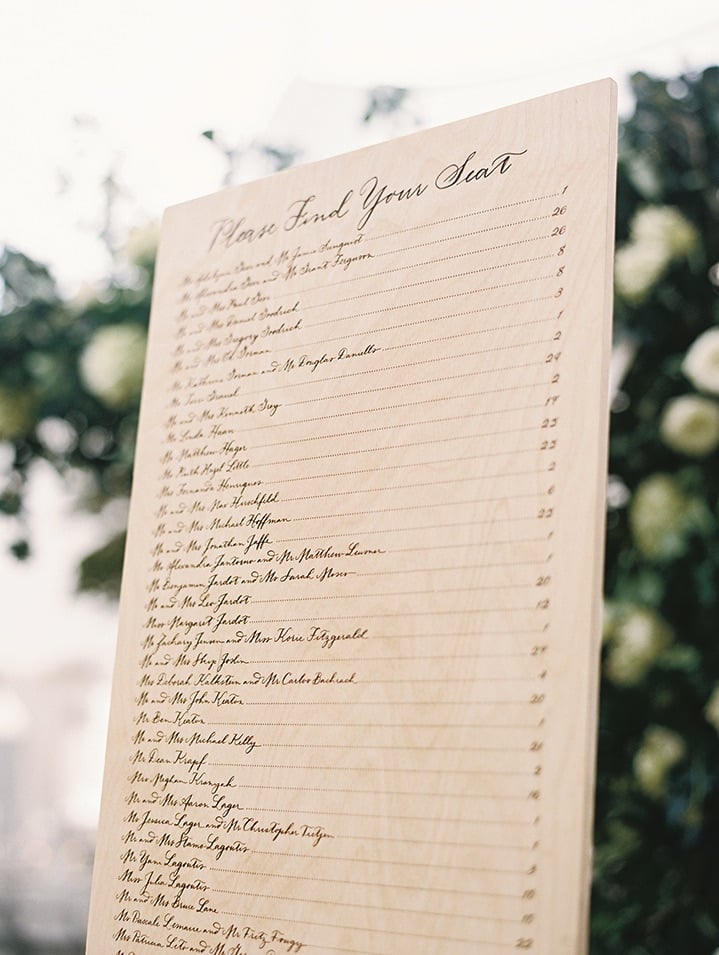 Please Find Your Seat
Ms and Mr 1
Ms Alexandra and Mr Grant Ferguson 26
Mr and Mrs Paul 26
Mr and Mrs Daniel Godrich 8
Mr and Mrs Gregory Godrich 8
Mr and Mrs Gorman 3
Ms Katherine Gorman and Mr Douglas 1
Ms 2
Mr and Mrs Kenneth Grey 24
Ms Linda Haan 2
Mr Matthew Hager 14
Ms Ruth Hazel Little 23
Mrs Fernanda Henriques 23
Mr and Mrs Max Hirschfeld 2
Mr and Mrs Michael Hoffman 6
Mr and Mrs Jonathan Jaffe 23
Ms Alexandra Jantorno and Mr Matthew 1
Mr Benjamin Jardot and Ms Sarah Moser 1
Mr and Mrs Leo Jardot 20
Miss Margaret Jardot 12
Mr Zachary Jensen and Miss Korie Fitzgerald 1
Mr and Mrs Shep 24
Mrs Deborah Kalkstein and Mr Carlos Bachrach 4
Mr and Mrs John Keaton 20
Mr Ben Keaton 1
Mr and Mrs Michael Kelly 21
Mr Dean Krapf 2
Mrs Meghan Kranyak 16
Mr and Mrs Aaron Lager 1
Ms Jessica Lager and Mr Christopher Tietjen 1
Mr and Mrs Stama Lagoutis 3
Mr Yani Lagoutis 16
Miss Julia Lagoutis 16
Mr and Mrs Bruce Lane 22
Ms Pascale Lemaire and Mr Fritz Fougy
Mrs Patricia and Mr